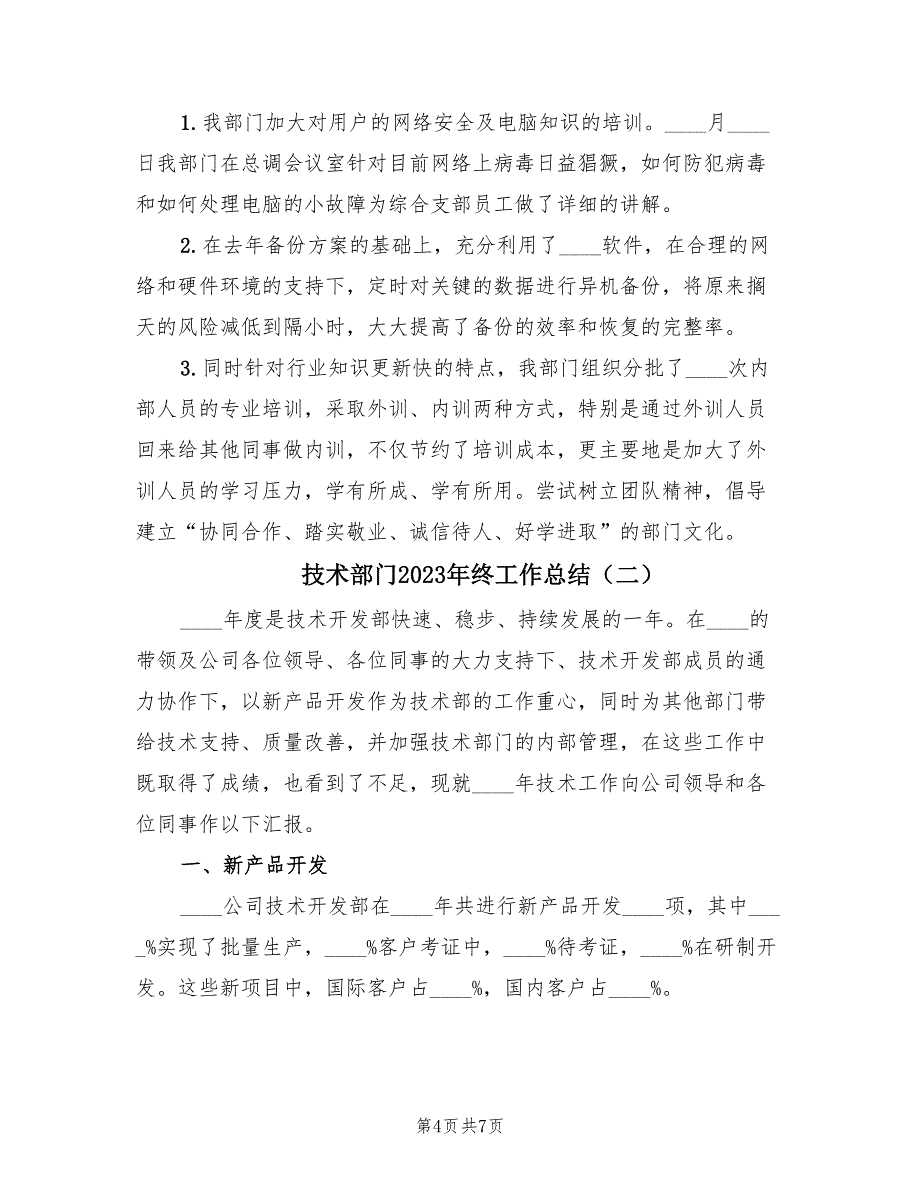 1. 我部门加大对用户的网络安全及电脑知识的培训。____月____
日我部门在总调会议室针对目前网络上病毒日益猖獗，如何防犯病毒
和如何处理电脑的小故障为综合支部员工做了详细的讲解。
2. 在去年备份方案的基础上，充分利用了____软件，在合理的网
络和硬件环境的支持下，定时对关键的数据进行异机备份，将原来搁
天的风险减低到隔小时，大大提高了备份的效率和恢复的完整率。
3. 同时针对行业知识更新快的特点，我部门组织分批了____次内
部人员的专业培训，采取外训、内训两种方式，特别是通过外训人员
回来给其他同事做内训，不仅节约了培训成本，更主要地是加大了外
训人员的学习压力，学有所成、学有所用。尝试树立团队精神，倡导
建立“协同合作、踏实敬业、诚信待人、好学进取”的部门文化。
技术部门2023年终工作总结（二）
____年度是技术开发部快速、稳步、持续发展的一年。在____的
带领及公司各位领导、各位同事的大力支持下、技术开发部成员的通
力协作下，以新产品开发作为技术部的工作重心，同时为其他部门带
给技术支持、质量改善，并加强技术部门的内部管理，在这些工作中
既取得了成绩，也看到了不足，现就____年技术工作向公司领导和各
位同事作以下汇报。
一、新产品开发
____公司技术开发部在____年共进行新产品开发____项，其中___
_%实现了批量生产，____%客户考证中，____%待考证，____%在研制开
发。这些新项目中，国际客户占____%，国内客户占____%。
第4页 共7页